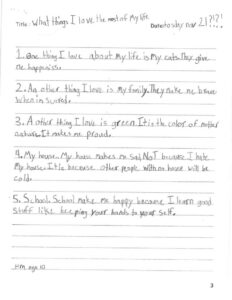 Title: What things I love the most of My life Date: today nov 21?!?!
1. One thing I love about my life is My cats. They give
me happiness.
2. An other thing I love is my family. They make me brave
when in scared.
3. A other thing I love is green. It is the color of mother
nature. It makes me proud.
4. My house. My house makes me sad, NOT because I hate
My house. It is because other people with no house will be
cold.
5. School. School make me happy because I learn good
stuff like keeping your hands to your self.
HM age 10
3